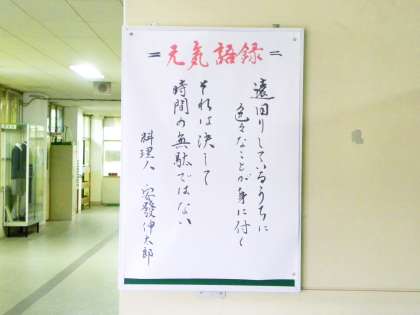 =元気語録=
遠回りしているうちに
色々なことが身に付く
それは決して
時間の無駄ではない
料理人 安發伸太郎